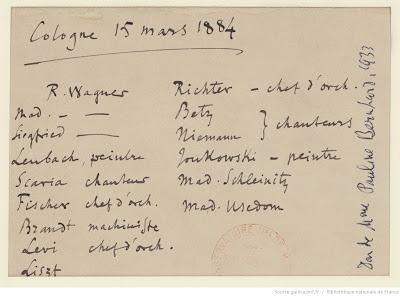 Cologne 15 mars 1884
R. Wagner
Mad. — —
Siegfried —
Lenbach, peintre
Scaria chanteur
Fischer chef d'orch.
Brandt machiniste
Levi chef d'orch.
Liszt
Richter — chef d'orch.
Betz
Niemann } chanteurs
Joukowski — peintre
Mad. Schleinitz
Mad. Usedom
Don de Mme Pauline Bernhard, 1933
Source gallica.bnf.fr / Bibliothèque nationale de France